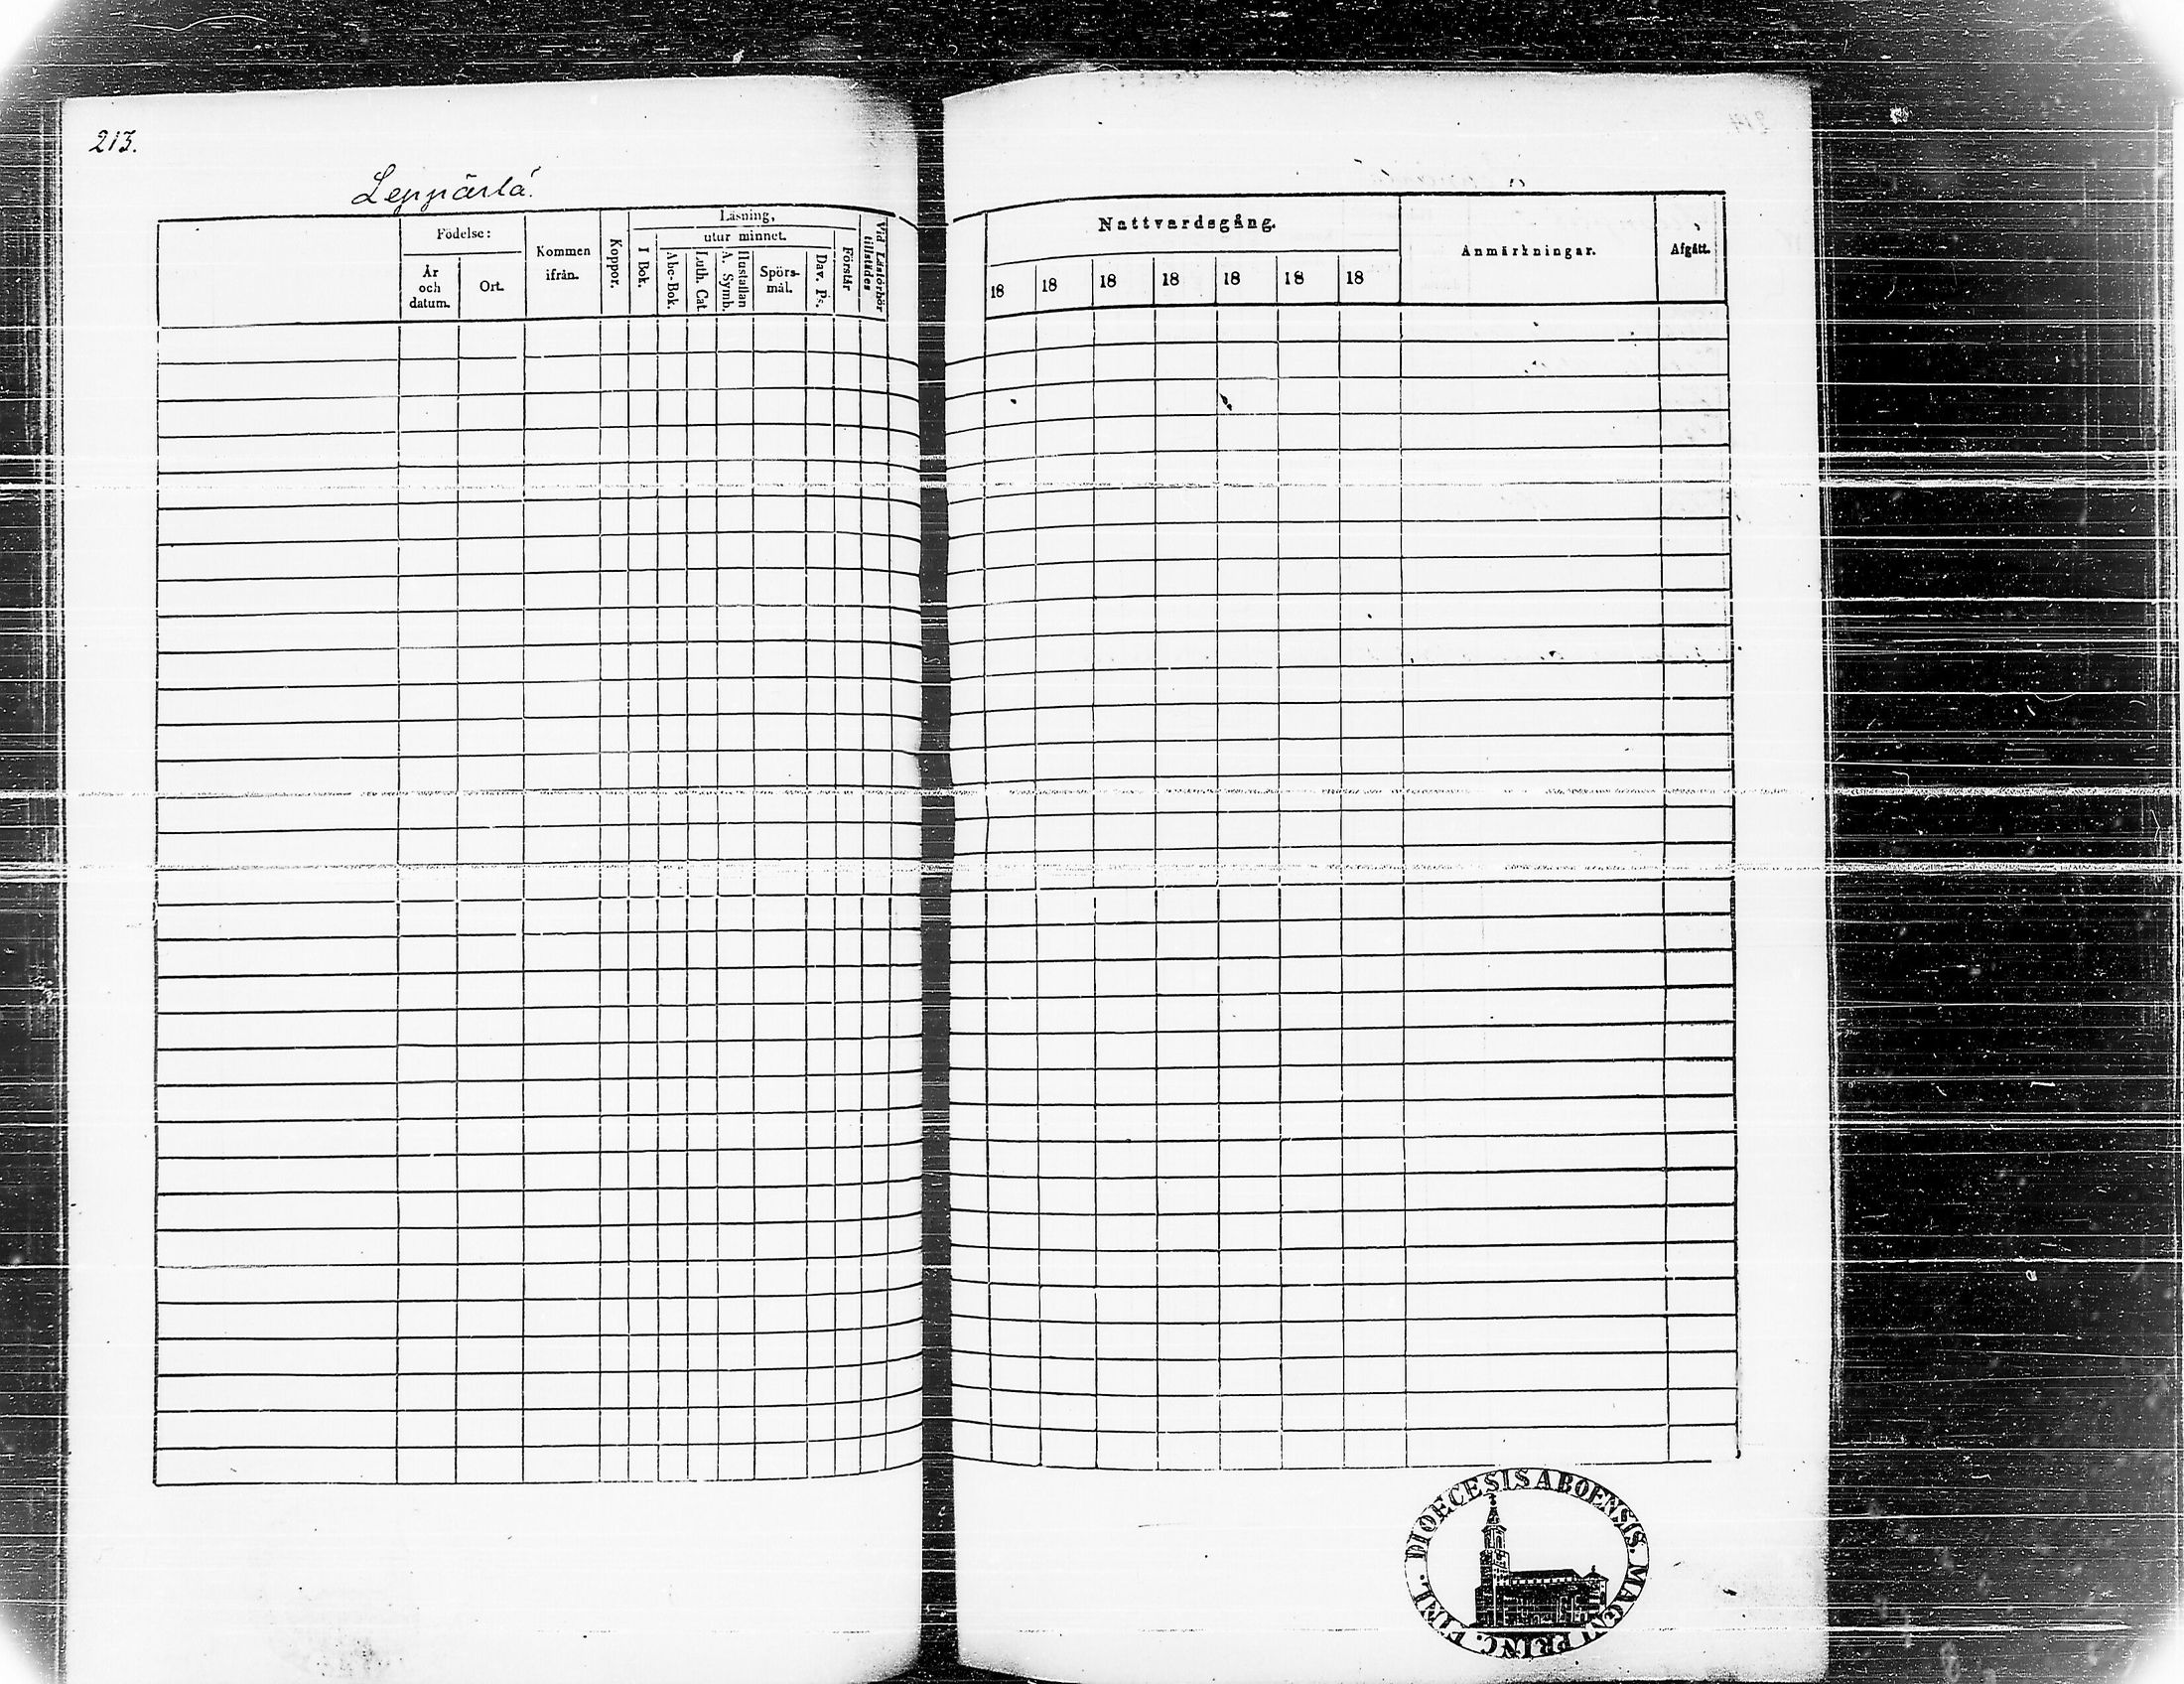 213.
Leppärlä.
Födelse:
År
och
datum.
Ort.
Kommen
ifrån.
Koppor.
Läsning,
utur minnet.
I Bok.
Abc-Bok.
Luth. Cat.
Hustaflan
A. Symb.
Spörs-
mål.
Dav. Ps.
Förstår
Vid Läsförhör
tillstädes
Nattvardsgång.
18 18 18 18 18 18 18
Anmärkningar.
Afgått.
DIOECESIS ABOENSIS. MAGNI PRINC. FINL.